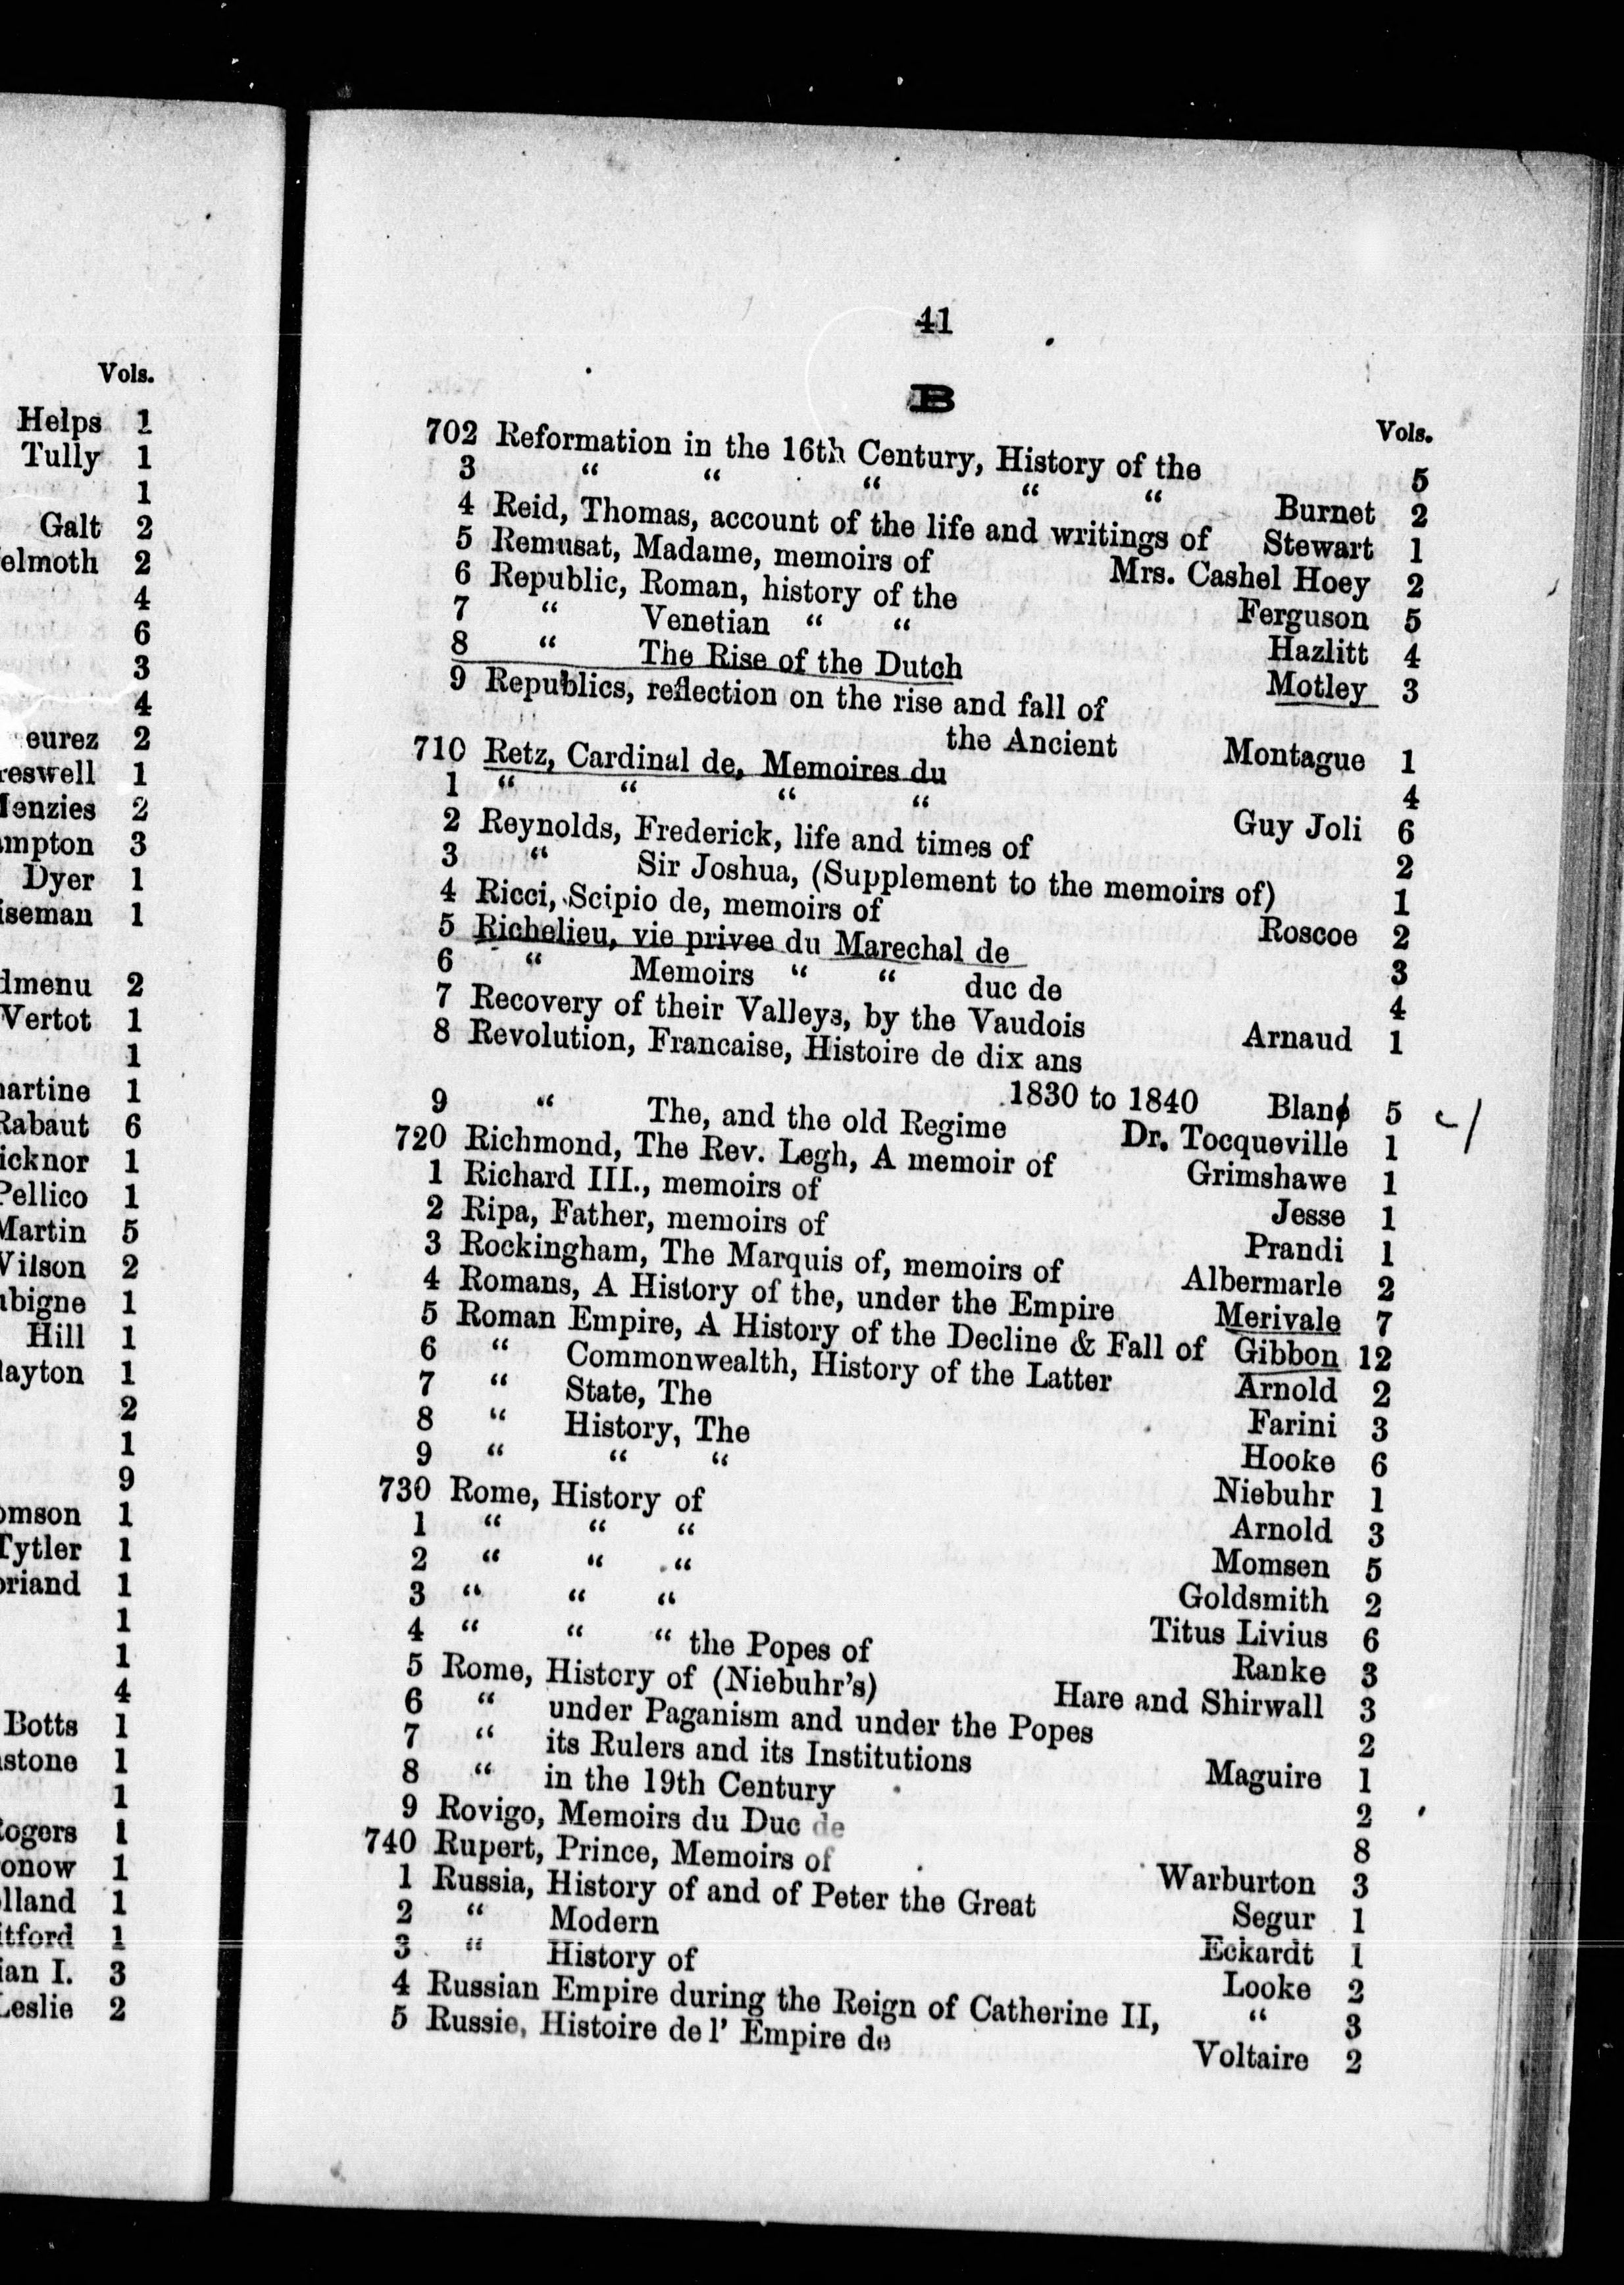 Vols.
Helps 1
Tully 1
1
Galt 2
elmoth 2
4
6
3
4
eurez 2
reswell 1
enzies 2
mpton 3
Dyer 1
iseman 1
dmenu 2
Vertot 1
1
artine 1
Rabaut 6
icknor 1
Pellico 1
Martin 5
Wilson 2
bigne 1
Hill 1
layton 1
2
1
9
omson 1
Tytler 1
riand 1
1
1
4
Botts 1
stone 1
1
Rogers 1
onow 1
lland 1
tford 1
ian I. 3
Leslie 2
41
B
Vols.
702 Reformation in the 16th Century, History of the 5
3 “ “ “ “ “ Burnet 2
4 Reid, Thomas, account of the life and writings of Stewart 1
5 Remusat, Madame, memoirs of Mrs. Cashel Hoey 2
6 Republic, Roman, history of the Ferguson 5
7 “ Venetian “ “ Hazlitt 4
8 “ The Rise of the Dutch Motley 3
9 Republics, reflection on the rise and fall of
the Ancient Montague 1
710 Retz, Cardinal de, Memoires du 4
1 “ “ “ “ Guy Joli 6
2 Reynolds, Frederick, life and times of 2
3 “ Sir Joshua, (Supplement to the memoirs of) 1
4 Ricci, Scipio de, memoirs of Roscoe 2
5 Richelieu, vie privee du Marechal de 3
6 “ Memoirs “ “ duc de 4
7 Recovery of their Valleys, by the Vaudois Arnaud 1
8 Revolution, Francaise, Histoire de dix ans
1830 to 1840 Blanc 5
9 “ The, and the old Regime Dr. Tocqueville 1
720 Richmond, The Rev. Legh, A memoir of Grimshawe 1
1 Richard III., memoirs of Jesse 1
2 Ripa, Father, memoirs of Prandi 1
3 Rockingham, The Marquis of, memoirs of Albermarle 2
4 Romans, A History of the, under the Empire Merivale 7
5 Roman Empire, A History of the Decline & Fall of Gibbon 12
6 “ Commonwealth, History of the Latter Arnold 2
7 “ State, The Farini 3
8 “ History, The Hooke 6
9 “ “ “ Niebuhr 1
730 Rome, History of Arnold 3
1 “ “ “ Momsen 5
2 “ “ “ Goldsmith 2
3 “ “ “ Titus Livius 6
4 “ “ “ the Popes of Ranke 3
5 Rome, History of (Niebuhr's) Hare and Shirwall 3
6 “ under Paganism and under the Popes 2
7 “ its Rulers and its Institutions Maguire 1
8 “ in the 19th Century 2
9 Rovigo, Memoirs du Duc de 8
740 Rupert, Prince, Memoirs of Warburton 3
1 Russia, History of and of Peter the Great Segur 1
2 “ Modern Eckardt 1
3 “ History of Looke 2
4 Russian Empire during the Reign of Catherine II, “ 3
5 Russie, Histoire de l' Empire de Voltaire 2